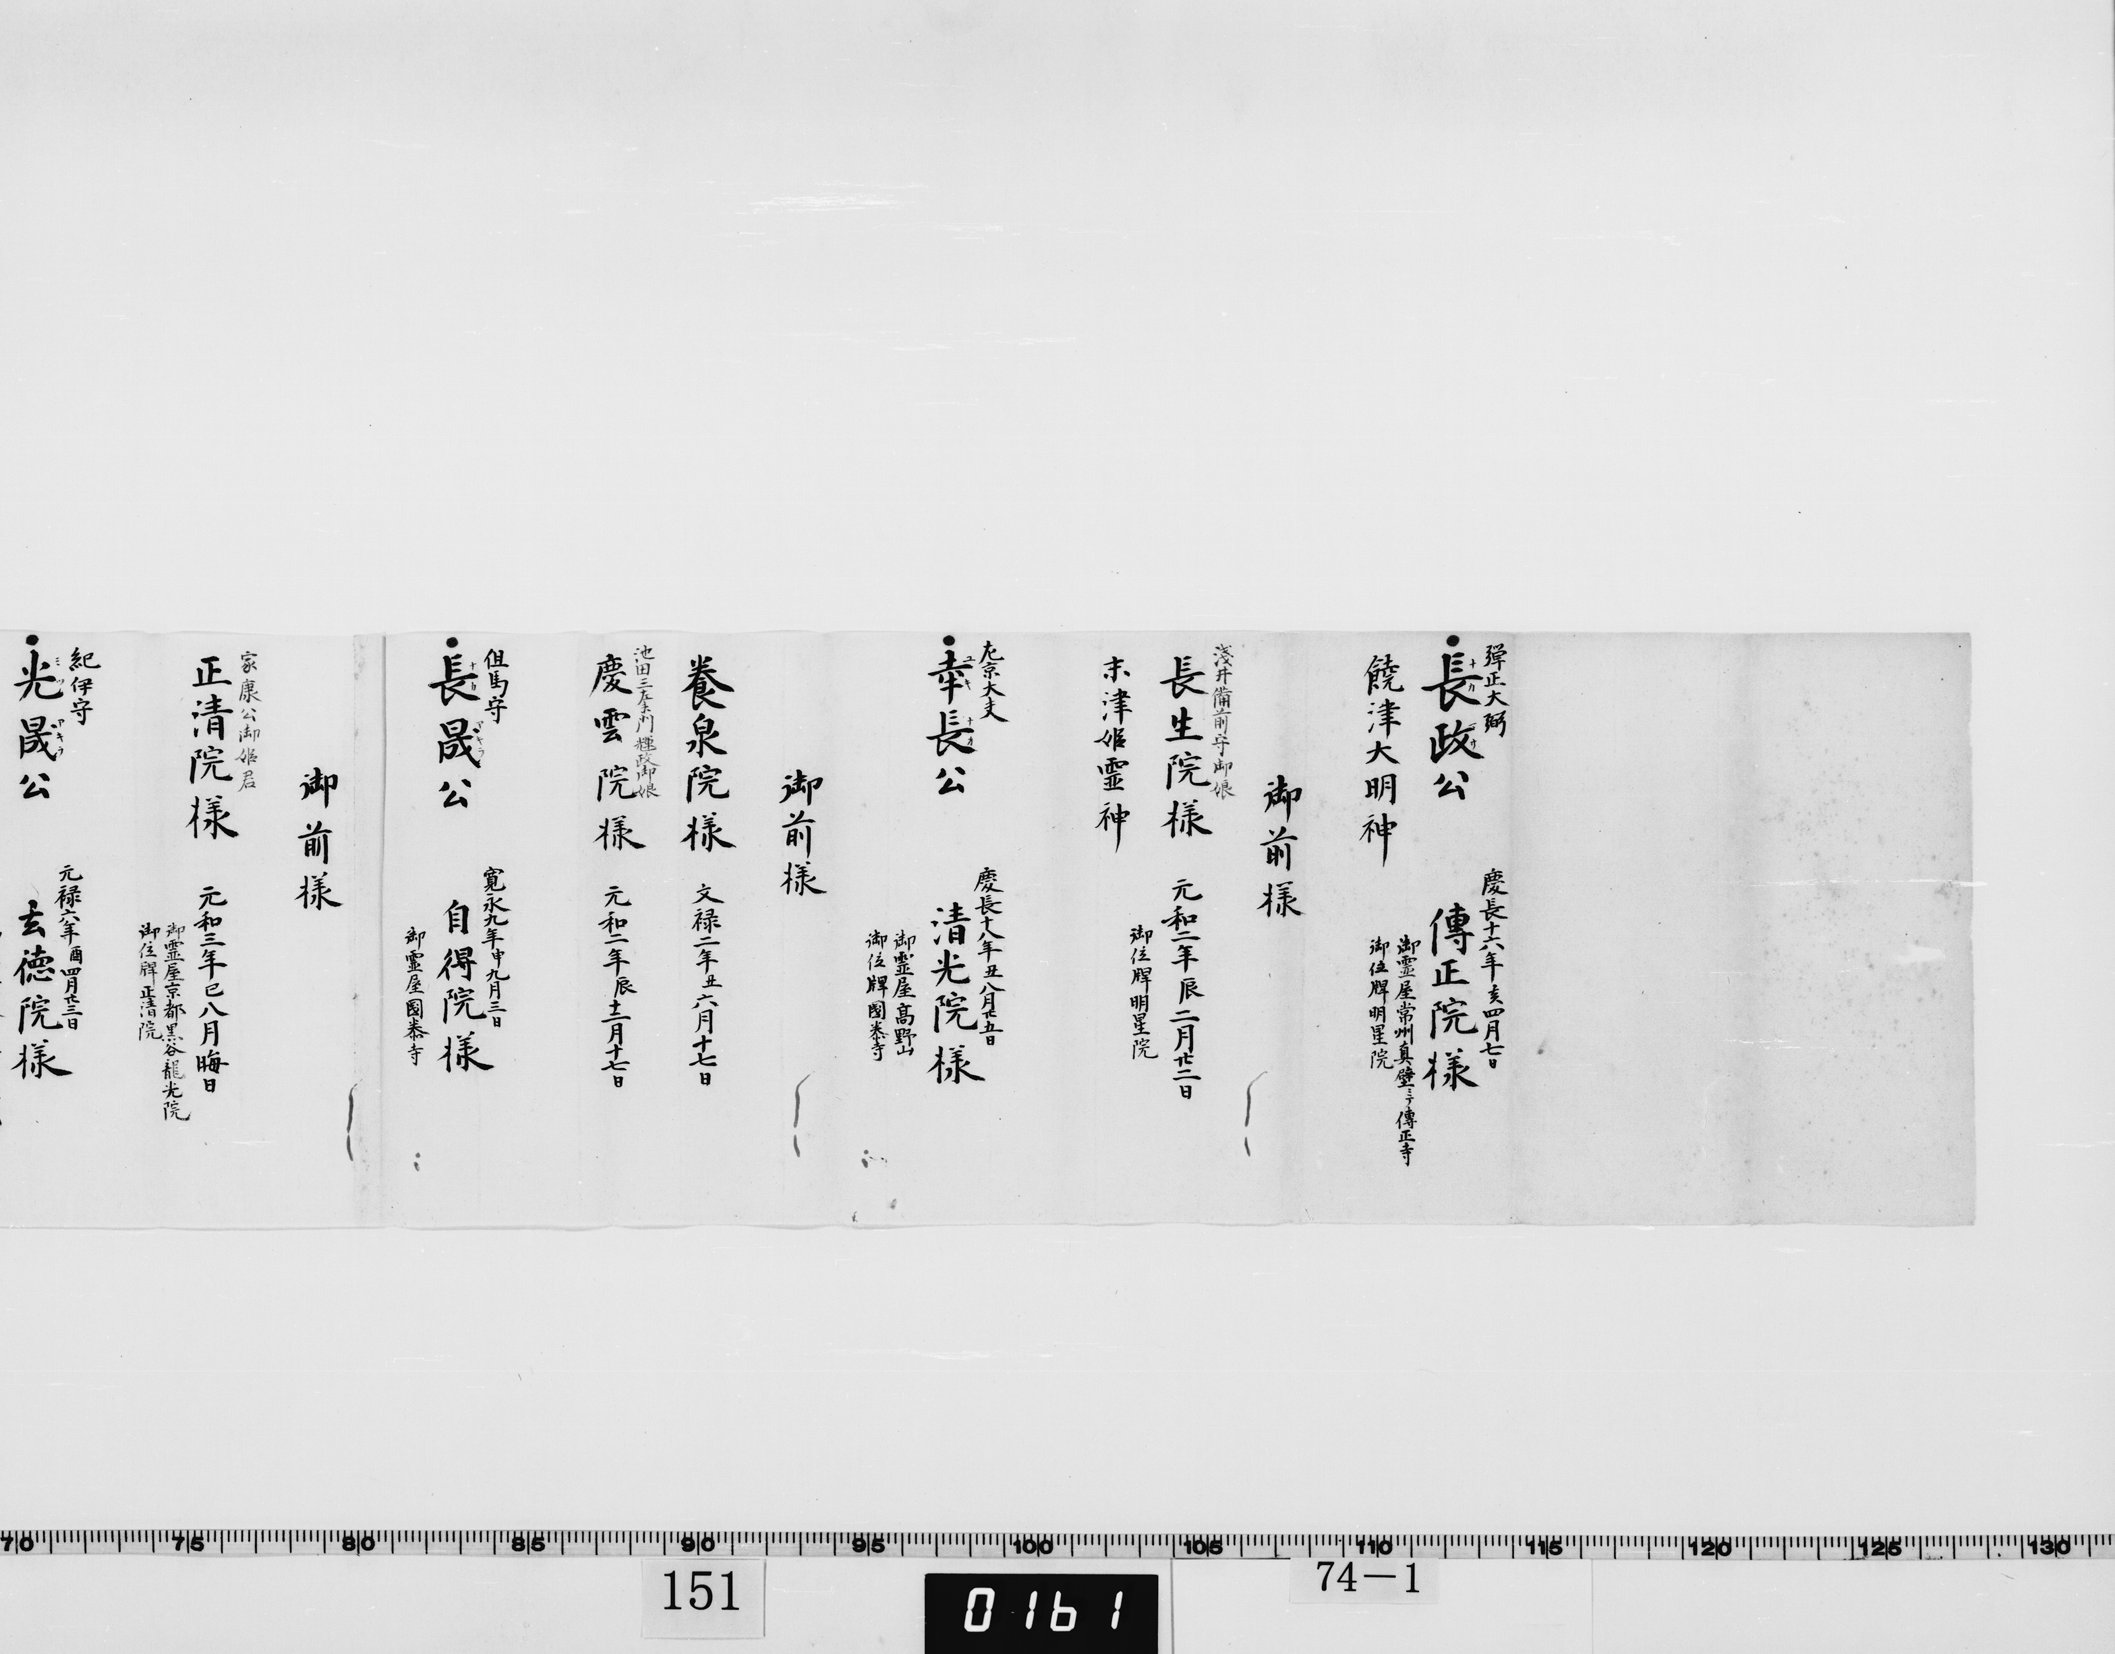 弾正大弼
長政公
ナカ
マサ
慶長十六年亥四月七日
傳正院様
御霊屋常州真壁ニテ傳正寺
御位牌明星院
饒津大明神
御前様
浅井備前守御娘
長生院様 元和二年辰二月廿二日
御位牌明星院
末津姫霊神
左京大夫
幸長公
ユキ
ナカ
慶長十八年丑八月廿五日
清光院様
御霊屋高野山
御位牌國泰寺
御前様
養泉院様 文禄二年丑六月十七日
池田三左衛門輝政御娘
慶雲院様 元和二年辰十二月十七日
但馬守
長晟公
ナカ
アキラ
寛永九年申九月三日
自得院様
御霊屋國泰寺
御前様
家康公御姫君
正清院様 元和三年巳八月晦日
御霊屋京都黒谷龍光院
御位牌正清院
紀伊守
光晟公
ミツ
アキラ
元禄六年酉四月廿三日
玄徳院様
70 75 80 85 90 95 100 105 110 115 120 125 130
151
0161
74-1